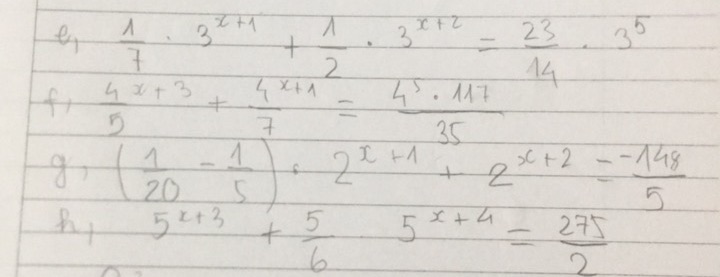 e, 1/7 · 3^{x+1} + 1/2 · 3^{x+2} = 23/14 · 3^5
f, 4^{x+3}/5 + 4^{x+1}/7 = 4^5 · 117/35
g, (1/20 - 1/5) · 2^{x+1} + 2^{x+2} = -148/5
h, 5^{x+3} + 5/6 5^{x+4} = 275/2